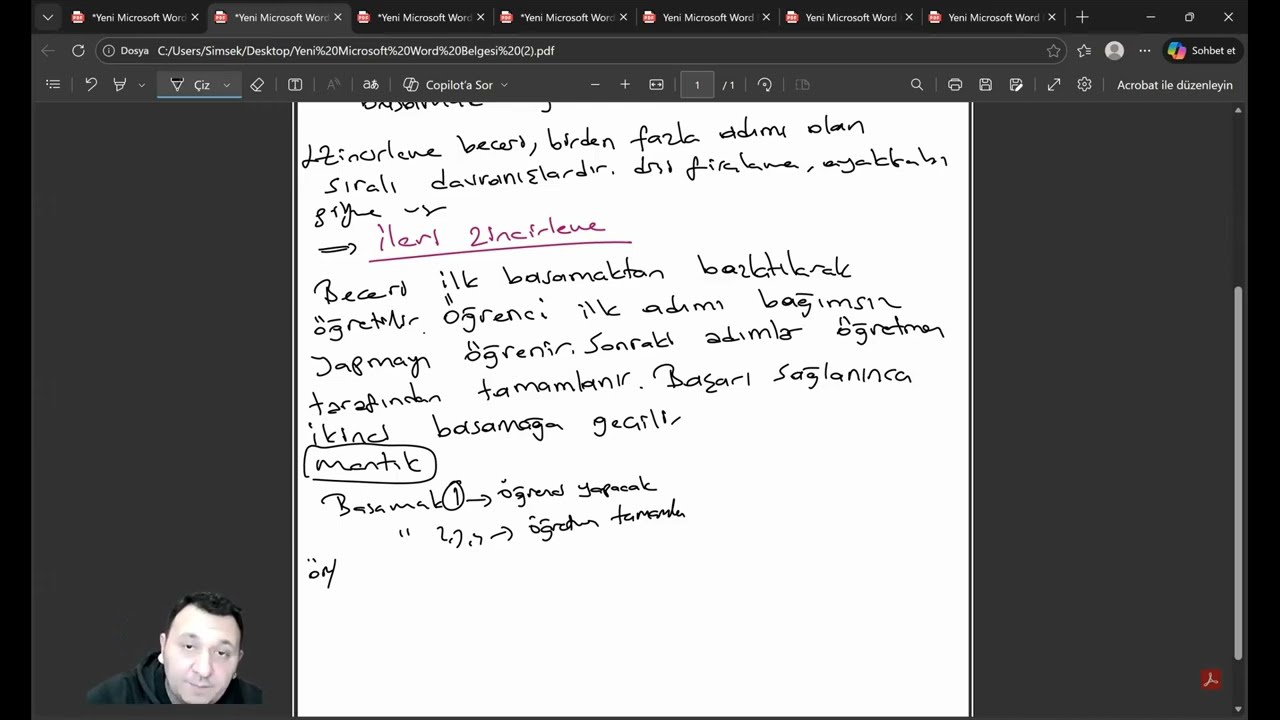 *Yeni Microsoft Word
*Yeni Microsoft Word
*Yeni Microsoft Word
*Yeni Microsoft Word
Yeni Microsoft Word
Yeni Microsoft Word
Yeni Microsoft Word
Dosya
C:/Users/Simsek/Desktop/Yeni%20Microsoft%20Word%20Belgesi%20(2).pdf
Sohbet et
Çiz
Copilot'a Sor
1 / 1
Acrobat ile düzenleyin
Zincirleme beceri, birden fazla adımı olan
sıralı davranışlardır. diş fırçalama, ayakkabı
giyme vs
⇒ ileri zincirleme
Beceri ilk basamaktan başlatılarak
öğretilir. Öğrenci ilk adımı bağımsız
yapmayı öğrenir. Sonraki adımlar öğretmen
tarafından tamamlanır. Başarı sağlanınca
ikinci basamağa geçilir
mantık
Basamak 1 → öğrenci yapacak
" 2,3,4 → öğretmen tamamla
ör/